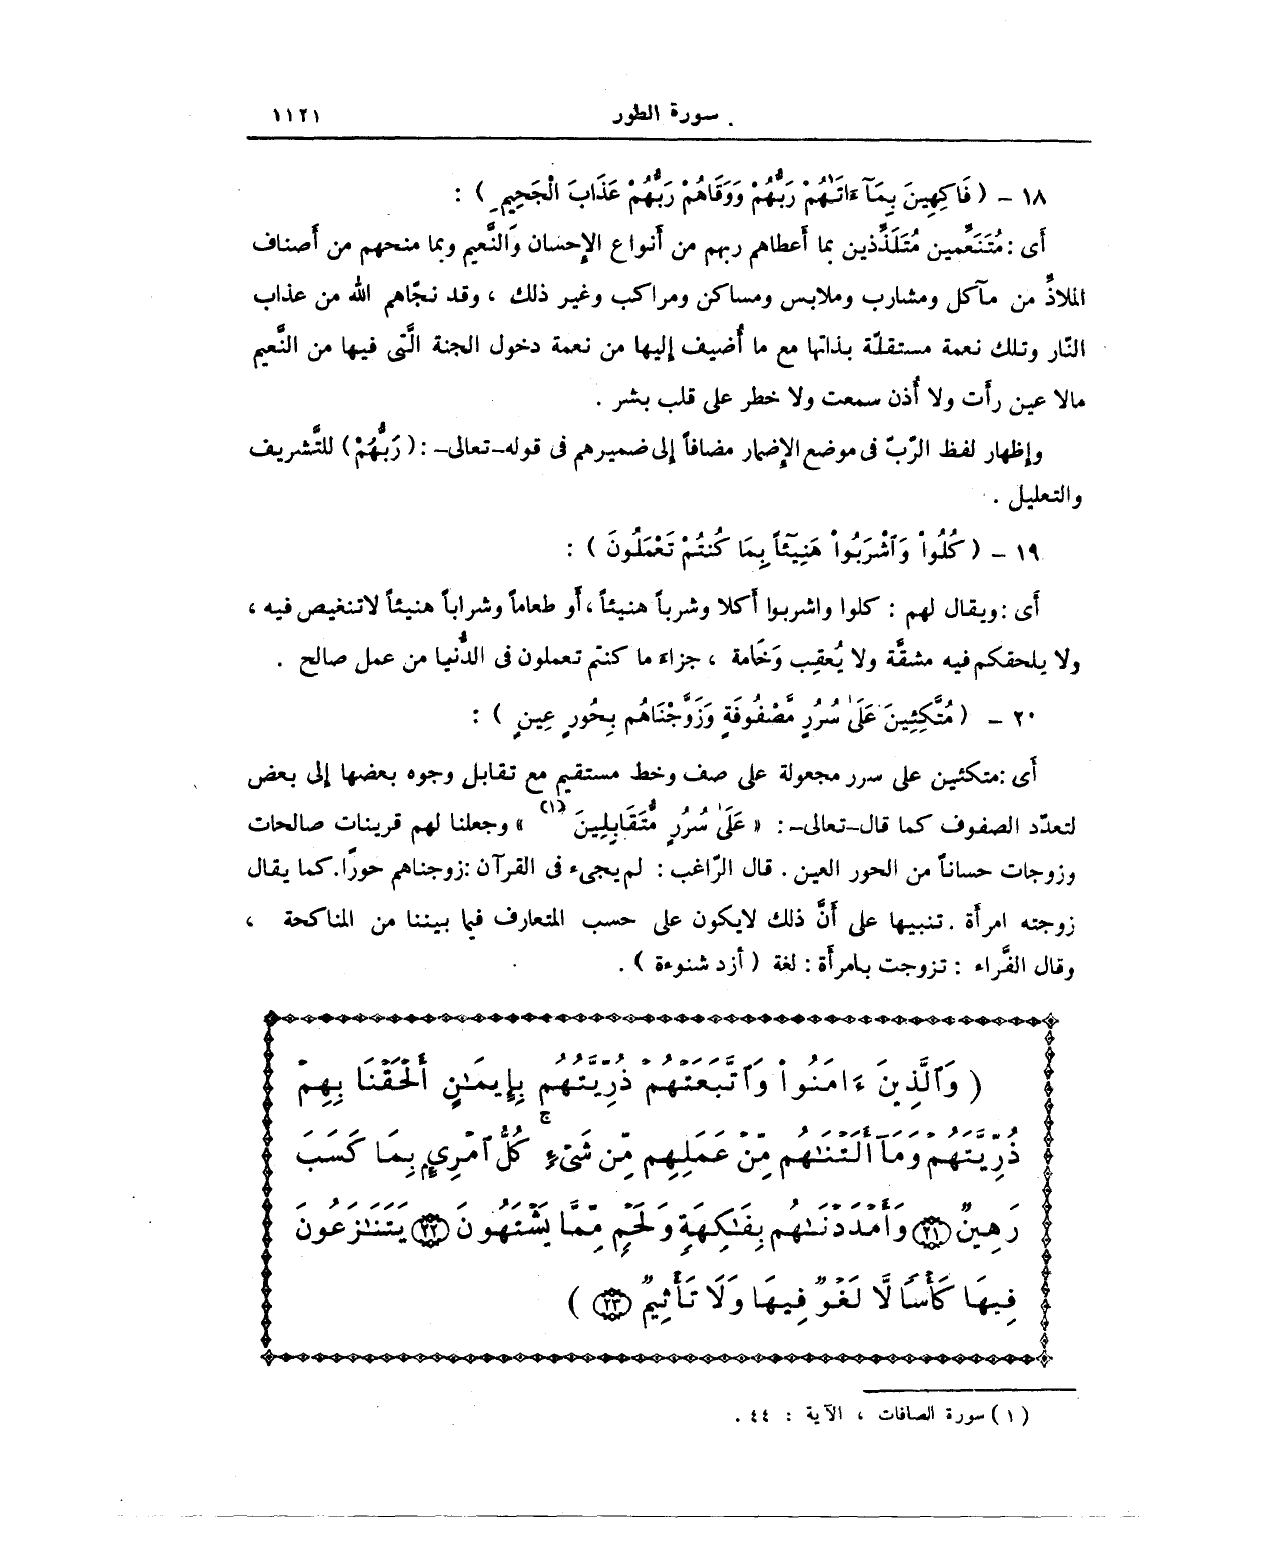 سورة الطور ١١٢١
١٨ - ( فَاكِهِينَ بِمَآ ءَاتَىٰهُمْ رَبُّهُمْ وَوَقَاهُمْ رَبُّهُمْ عَذَابَ الْجَحِيمِ ) :
أَى : مُتَنَعِّمين مُتَلَذِّذين بما أَعطاهم ربهم من أَنواع الإِحسان والنَّعيم وبما منحهم من أَصناف
الملاذِّ من مآكل ومشارب وملابس ومساكن ومراكب وغير ذلك ، وقد نجّاهم الله من عذاب
النّار وتلك نعمة مستقلّة بذاتها مع ما أُضيف إليها من نعمة دخول الجنة الَّتى فيها من النَّعيم
مالا عين رأَت ولا أُذن سمعت ولا خطر على قلب بشر .
وإظهار لفظ الرّبّ فى موضع الإضمار مضافاً إلى ضميرهم فى قوله-تعالى- : ( رَبُّهُمْ ) للتَّشريف
والتعليل .
١٩ - ( كُلُواْ وَٱشْرَبُواْ هَنِيٓئاً بِمَا كُنتُمْ تَعْمَلُونَ ) :
أَى : ويقال لهم : كلوا واشربوا أَكلا وشرباً هنيئاً ، أَو طعاماً وشراباً هنيئاً لاتنغيص فيه ،
ولا يلحقكم فيه مشقَّة ولا يُعقِب وَخَامة ، جزاءَ ما كنتم تعملون فى الدُّنيا من عمل صالح .
٢٠ - ( مُتَّكِئِينَ عَلَىٰ سُرُرٍ مَّصْفُوفَةٍ وَزَوَّجْنَاهُم بِحُورٍ عِينٍ ) :
أَى : متكئين على سرر مجعولة على صف وخط مستقيم مع تقابل وجوه بعضها إلى بعض
لتعدّد الصفوف كما قال-تعالى- : « عَلَىٰ سُرُرٍ مُّتَقَابِلِينَ (١) » وجعلنا لهم قرينات صالحات
وزوجات حساناً من الحور العين . قال الرّاغب : لم يجىء فى القرآن : زوجناهم حورًا . كما يقال
زوجته امرأَة . تنبيها على أَنَّ ذلك لايكون على حسب المتعارف فيما بيننا من المناكحة ،
وقال الفَّراء : تزوجت بامرأَة : لغة ( أزد شنوءة ) .
( وَٱلَّذِينَ ءَامَنُواْ وَٱتَّبَعَتْهُمْ ذُرِّيَّتُهُم بِإِيمَـٰنٍ أَلْحَقْنَا بِهِمْ
ذُرِّيَّتَهُمْ وَمَآ أَلَتْنَـٰهُم مِّنْ عَمَلِهِم مِّن شَىْءٍ ۚ كُلُّ ٱمْرِىٍٕ بِمَا كَسَبَ
رَهِينٌ ٢١ وَأَمْدَدْنَـٰهُم بِفَـٰكِهَةٍ وَلَحْمٍ مِّمَّا يَشْتَهُونَ ٢٢ يَتَنَـٰزَعُونَ
فِيهَا كَأْسًا لَّا لَغْوٌ فِيهَا وَلَا تَأْثِيمٌ ٢٣ )
( ١ ) سورة الصافات ، الآية : ٤٤ .